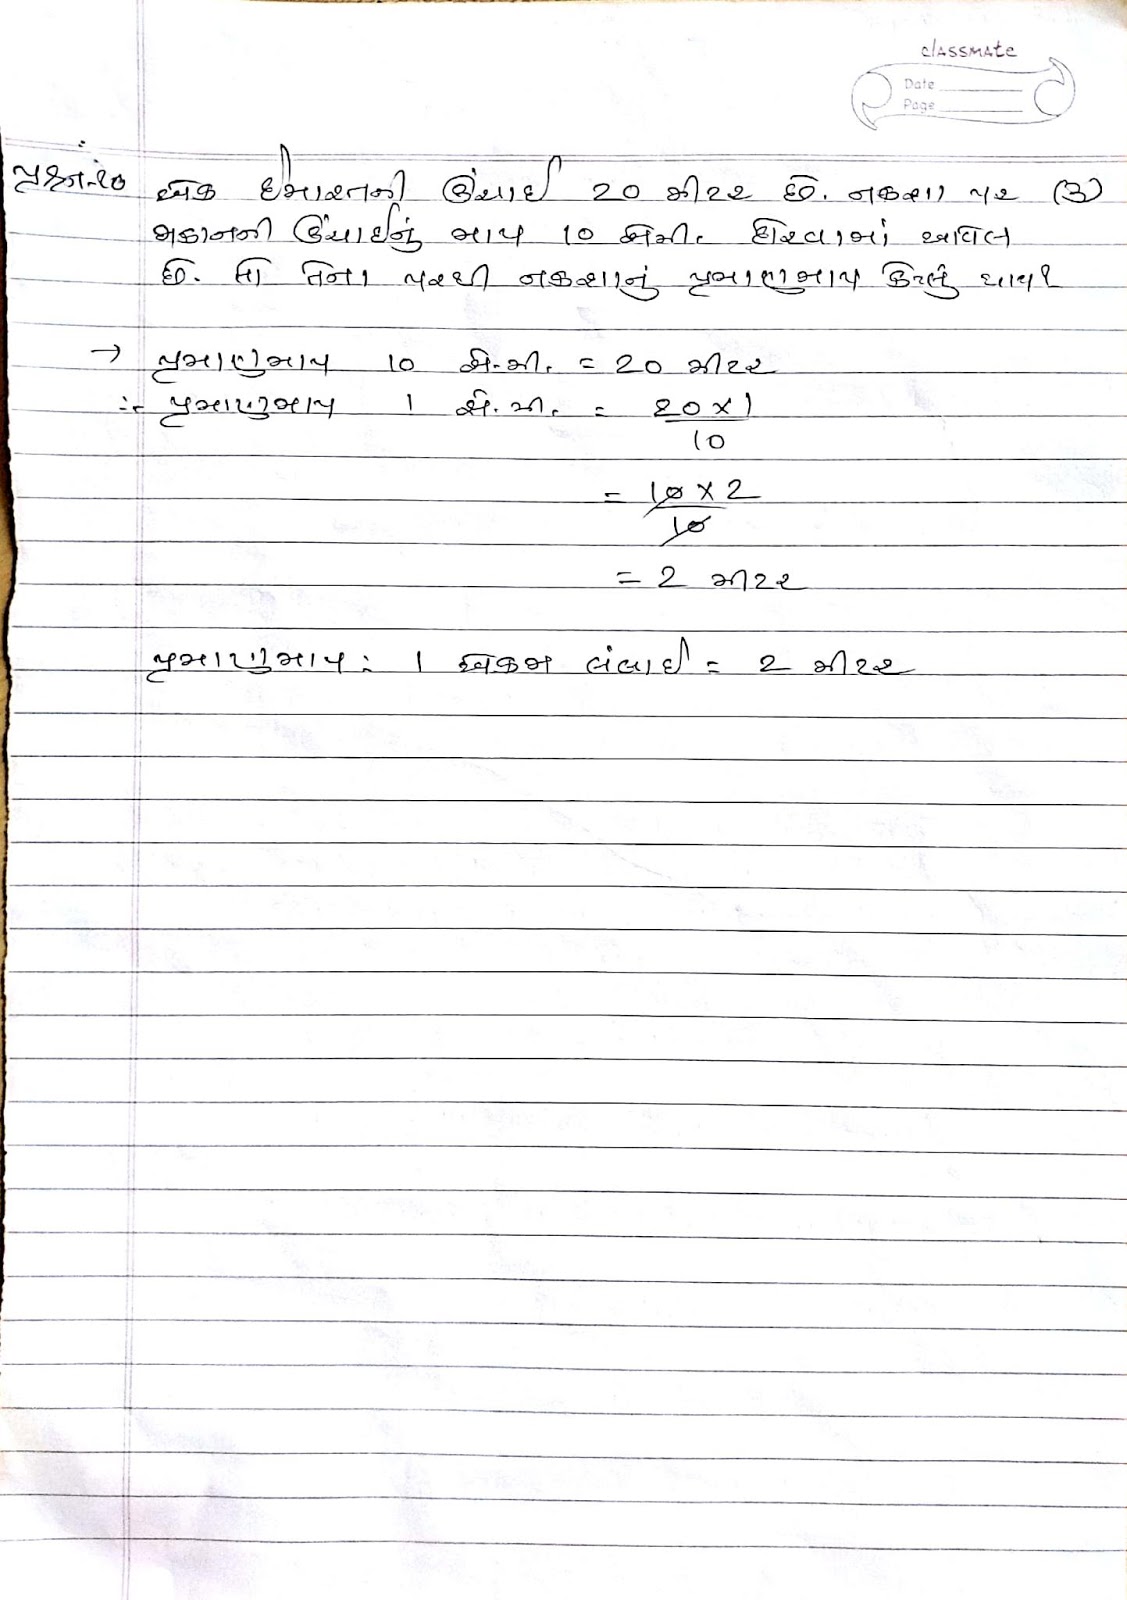 classmate
Date
Page
પ્રશ્ન-૨૦ એક ઈમારતની ઉંચાઈ 20 મીટર છે. નકશા પર (૩)
મકાનની ઉંચાઈનું માપ 10 સેમી. દોરવામાં આવેલ
છે. તો તેના પરથી નકશાનું પ્રમાણમાપ કેટલું થાય?
→ પ્રમાણમાપ 10 સે.મી. = 20 મીટર
∴ પ્રમાણમાપ 1 સે.મી. = 20 × 1
10
= 10 × 2
10
= 2 મીટર
પ્રમાણમાપ : 1 એકમ લંબાઈ = 2 મીટર